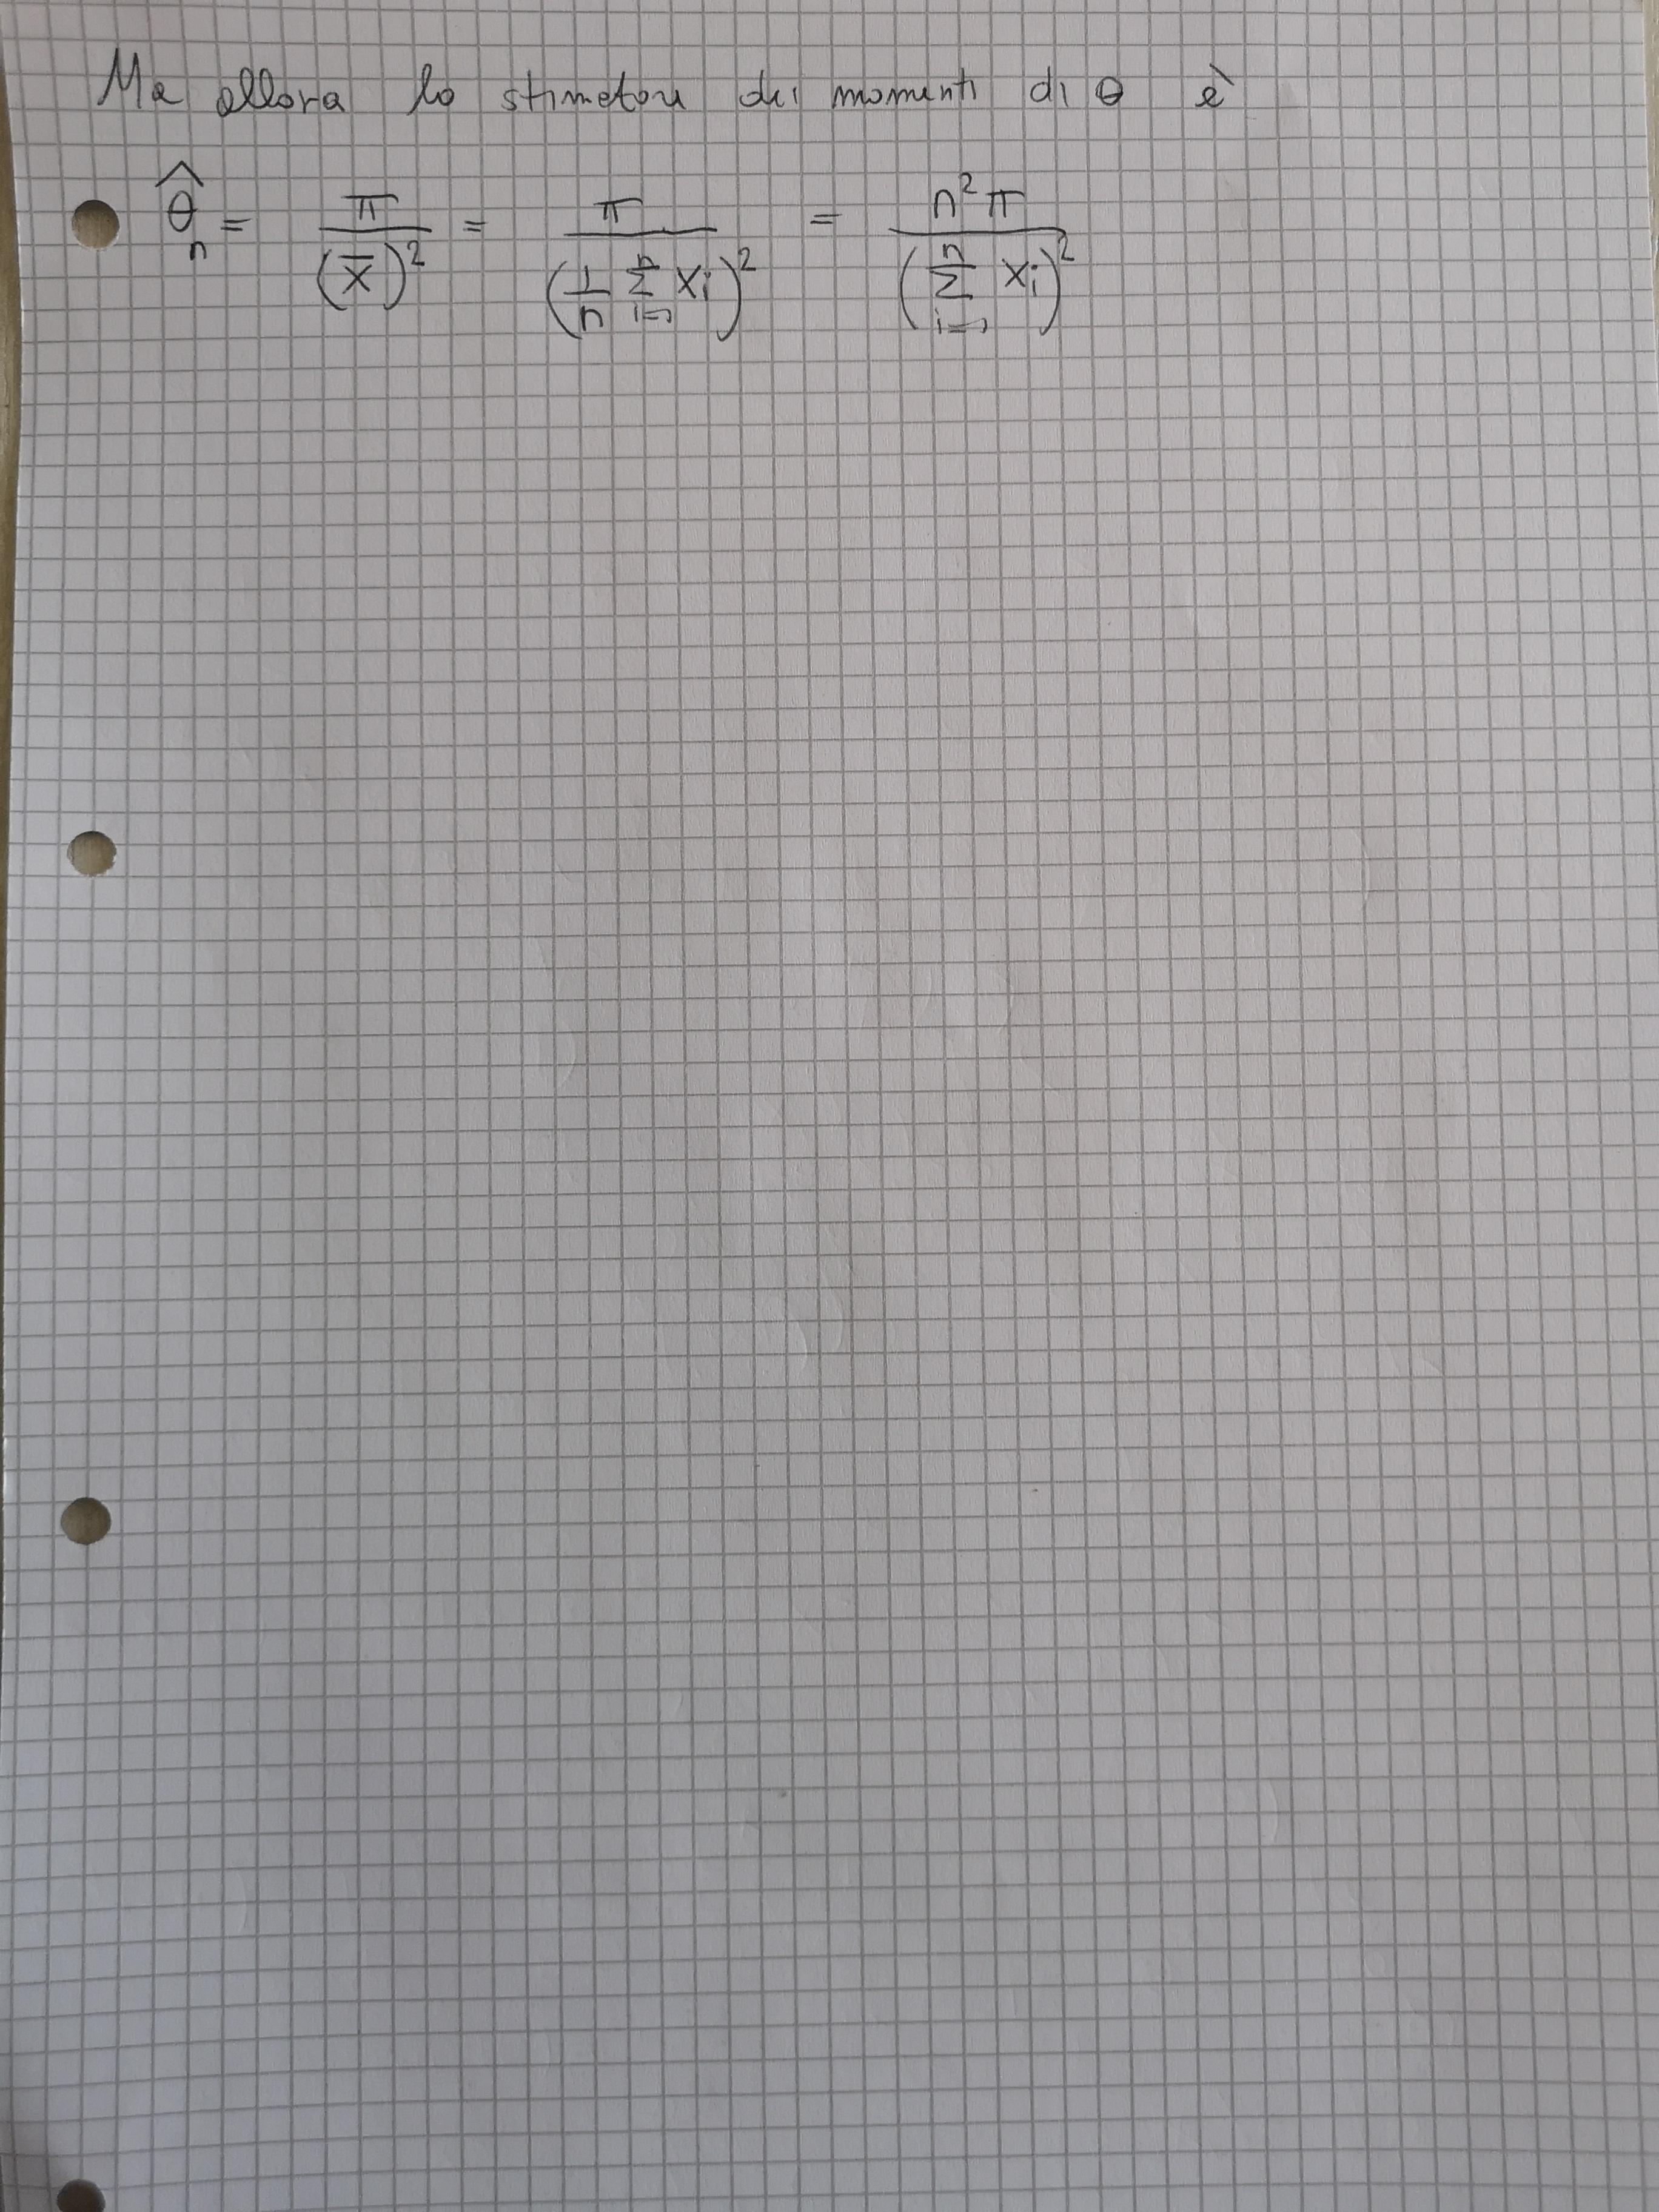 Ma allora lo stimatore dei momenti di θ è
θ̂_n = π / (X̄)² = π / (1/n Σ_{i=1}^{n} Xi)² = n²π / (Σ_{i=1}^{n} Xi)²